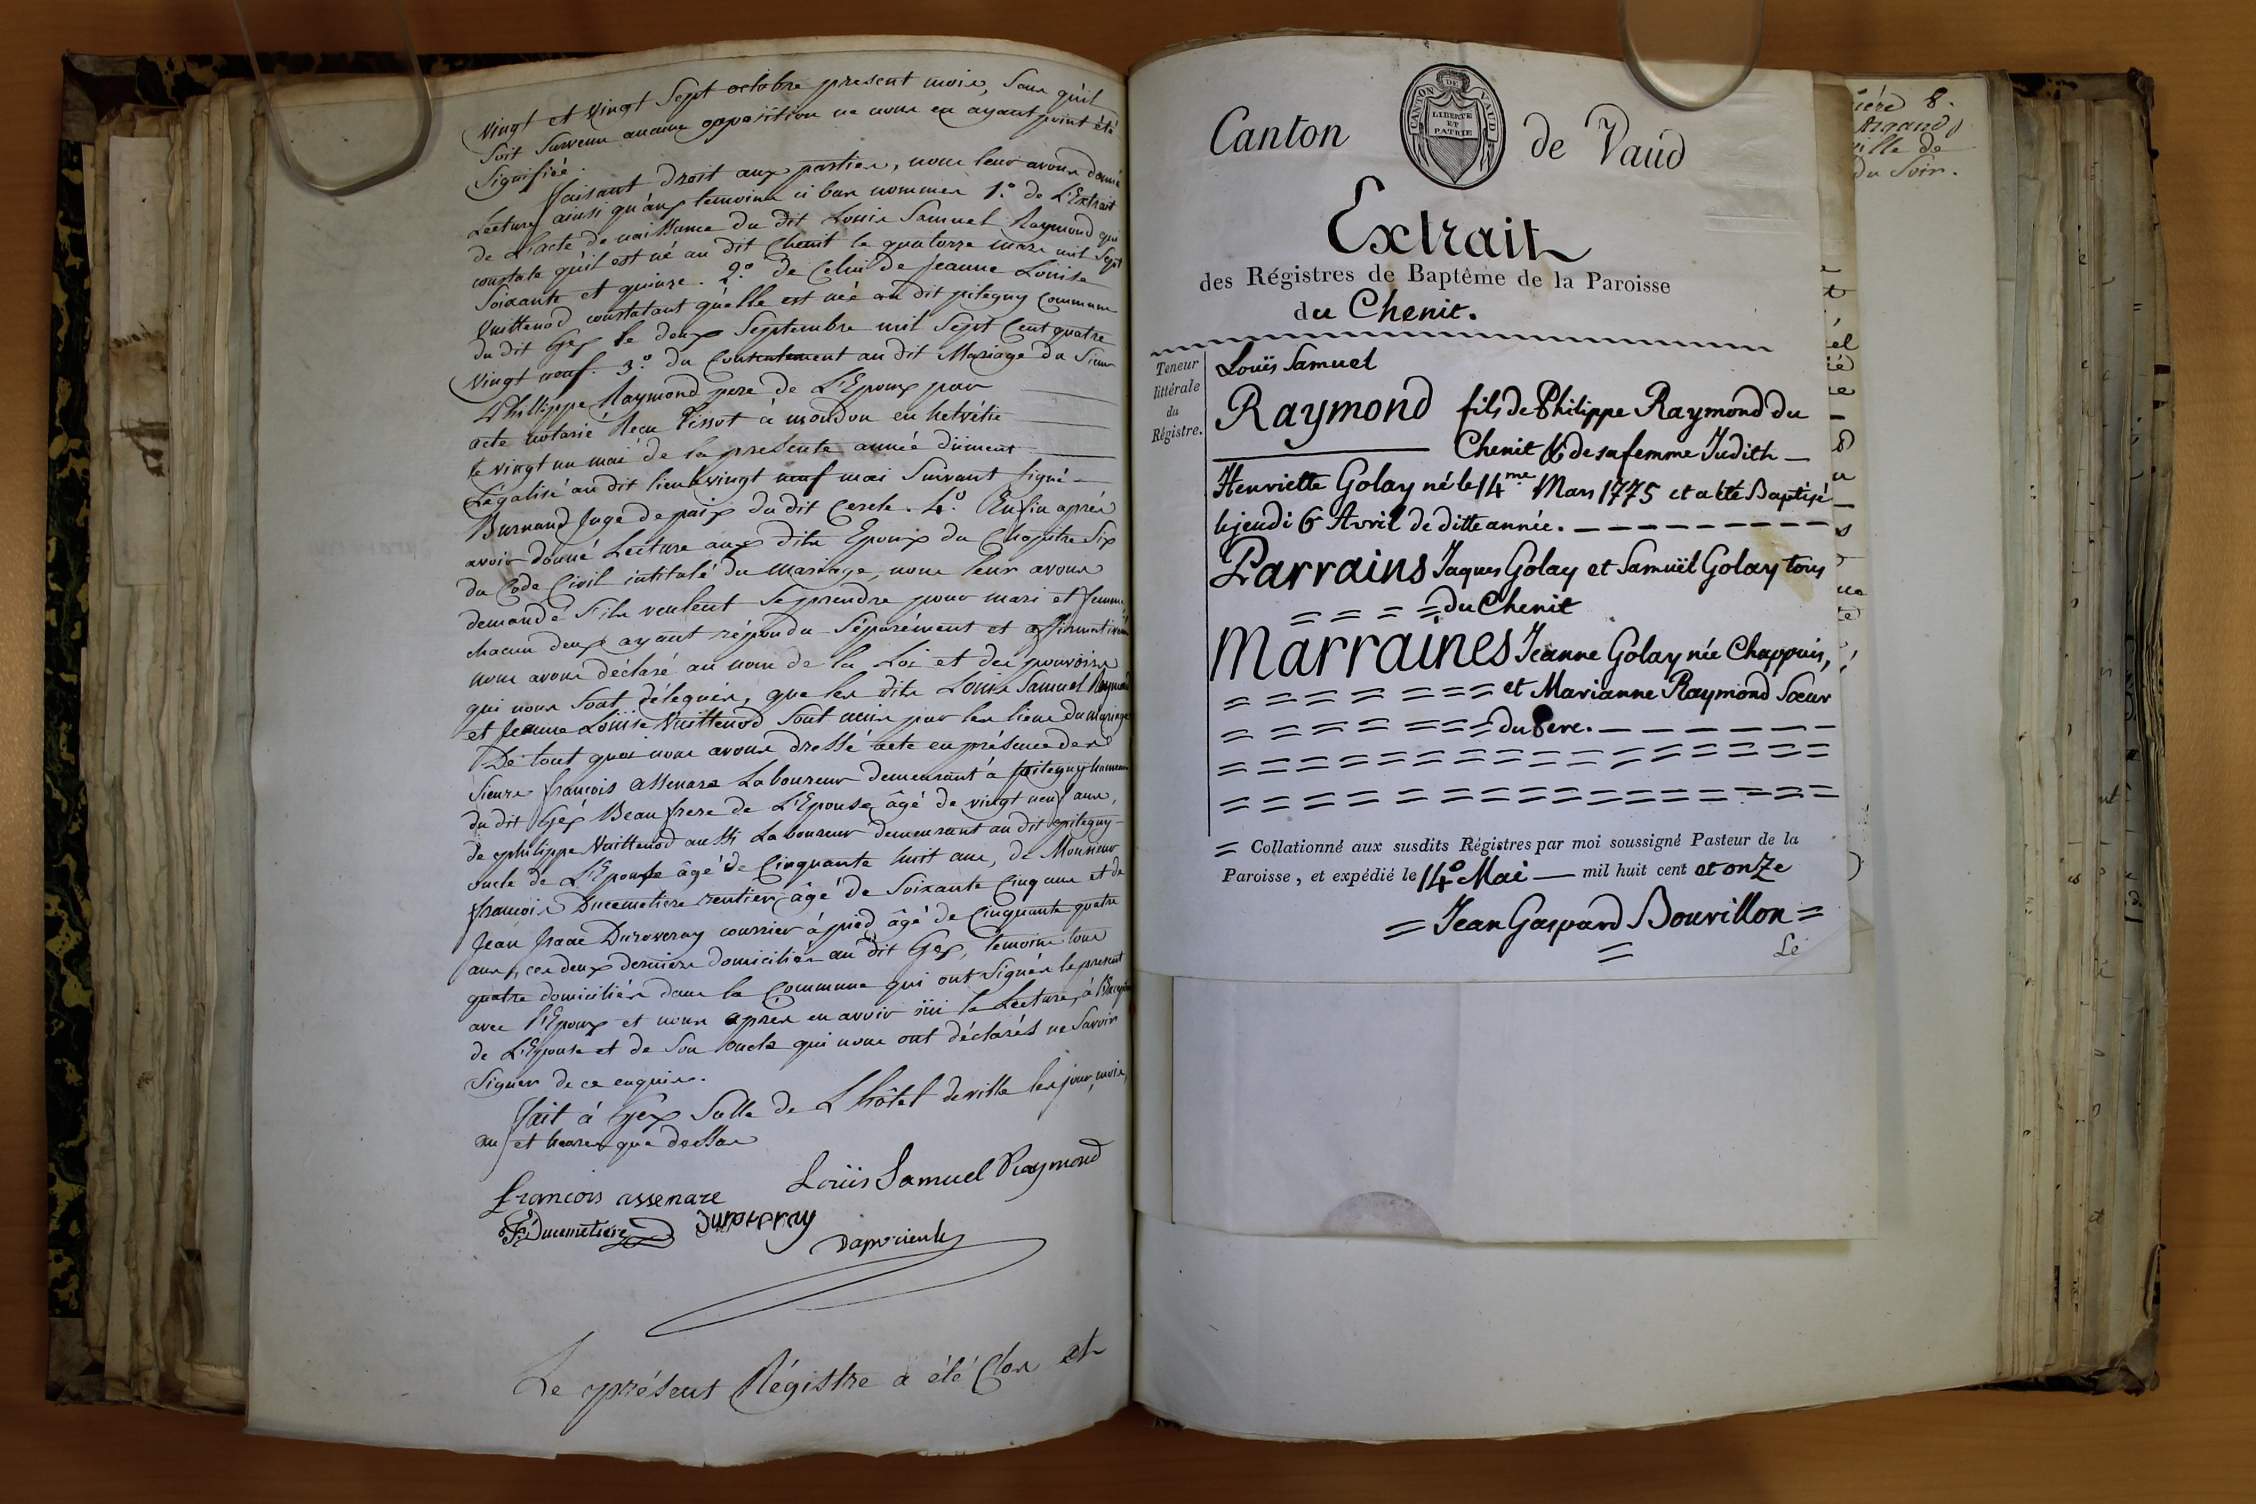 Vingt et Vingt Sept octobre present mois, Sans qu'il
Soit Survenu aucune opposition ne nous en ayant point été
Signifiée.
faisant droit aux parties, nous leur avons donné
Lecture ainsi qu'aux temoins ci bas nommés 1.° de L'Extrait
de L'acte de naissance du dit Louis Samuel Raymond qui
constate qu'il est né au dit Chenit le quatorze mars mil Sept
Soixante et quinze. 2.° de Celui de Jeanne Louise
Vuittenod constatant qu'elle est née au dit pitegny Commune
du dit Gex le deux Septembre mil Sept Cent quatre
Vingt neuf. 3.° du Consentement au dit Mariage du Sieur
Phillippe Raymond pere de L'Epoux par
acte notarié Reçu Tissot à moudon en helvétie
le vingt un mai de la présente année dûment
Légalisé au dit lieu le vingt neuf mai Suivant Signé
Burnand Juge de paix du dit Cercle. 4.° Enfin après
avoir donné Lecture aux dits Epoux du Chapitre Six
du Code Civil intitulé du Mariage, nous leur avons
demandé S'ils veulent Se prendre pour mari et femme
chacun deux ayant répondu Séparément et affirmativement
nous avons déclaré au nom de la Loi et des pouvoirs
qui nous Sont délégués, que les dits Louis Samuel Raymond
et Jeanne Louïse Vuittenod Sont unis par les liens du mariage
De tout quoi nous avons dressé acte en présence des
Sieurs françois Assenare Laboureur demeurant à pitegny hameau
du dit Gex Beau frere de L'Epouse, âgé de vingt neuf ans,
de philippe Vuittenod aussi Laboureur demeurant au dit pitegny
oncle de L'Epouse âgé de Cinquante huit ans, de Monsieur
françois Ducemetiere rentier âgé de Soixante Cinq ans et de
Jean Isaac Duroveray coursier à pied âgé de Cinquante quatre
ans, ces deux derniers domiciliés au dit Gex, temoins tous
quatre domiciliés dans la Commune qui ont Signés le présent
avec l'Epoux et nous après en avoir ouï la Lecture, à l'exception
de L'Epouse et de Son oncle qui nous ont déclarés ne Savoir
Signer de ce enquis.
fait à Gex Salle de L'hôtel deville les jour, mois,
an et heures que dessus
Louïs Samuel Raymond
francois assenare
Fs Ducemetiere
Duroveray
Le présent Régistre a été Clos et
Canton de Vaud
CANTON DE VAUD
LIBERTE
ET
PATRIE
Extrait
des Régistres de Baptême de la Paroisse
du Chenit.
Teneur
littérale
du
Régistre.
Louïs Samuel
Raymond fils de Philippe Raymond du
Chenit & de sa femme Judith
Henriette Golay né le 14me Mars 1775 et a été Baptisé
le jeudi 6 Avril de ditte année.
Parrains Jaques Golay et Samuël Golay tous
du Chenit
Marraines Jeanne Golay née Chappuis,
et Marianne Raymond Sœur
du Pere.
Collationné aux susdits Régistres par moi soussigné Pasteur de la
Paroisse, et expédié le 14° Mai mil huit cent et onze
Jean Gaspard Bouvillon
Le
8.
Argand
ville de
du Soir.